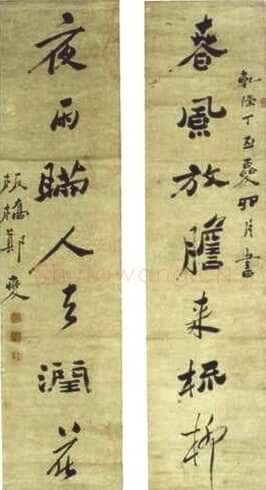 乾隆丁丑卯月書
春風放膽來梳柳
夜雨瞞人去潤花
板橋鄭燮